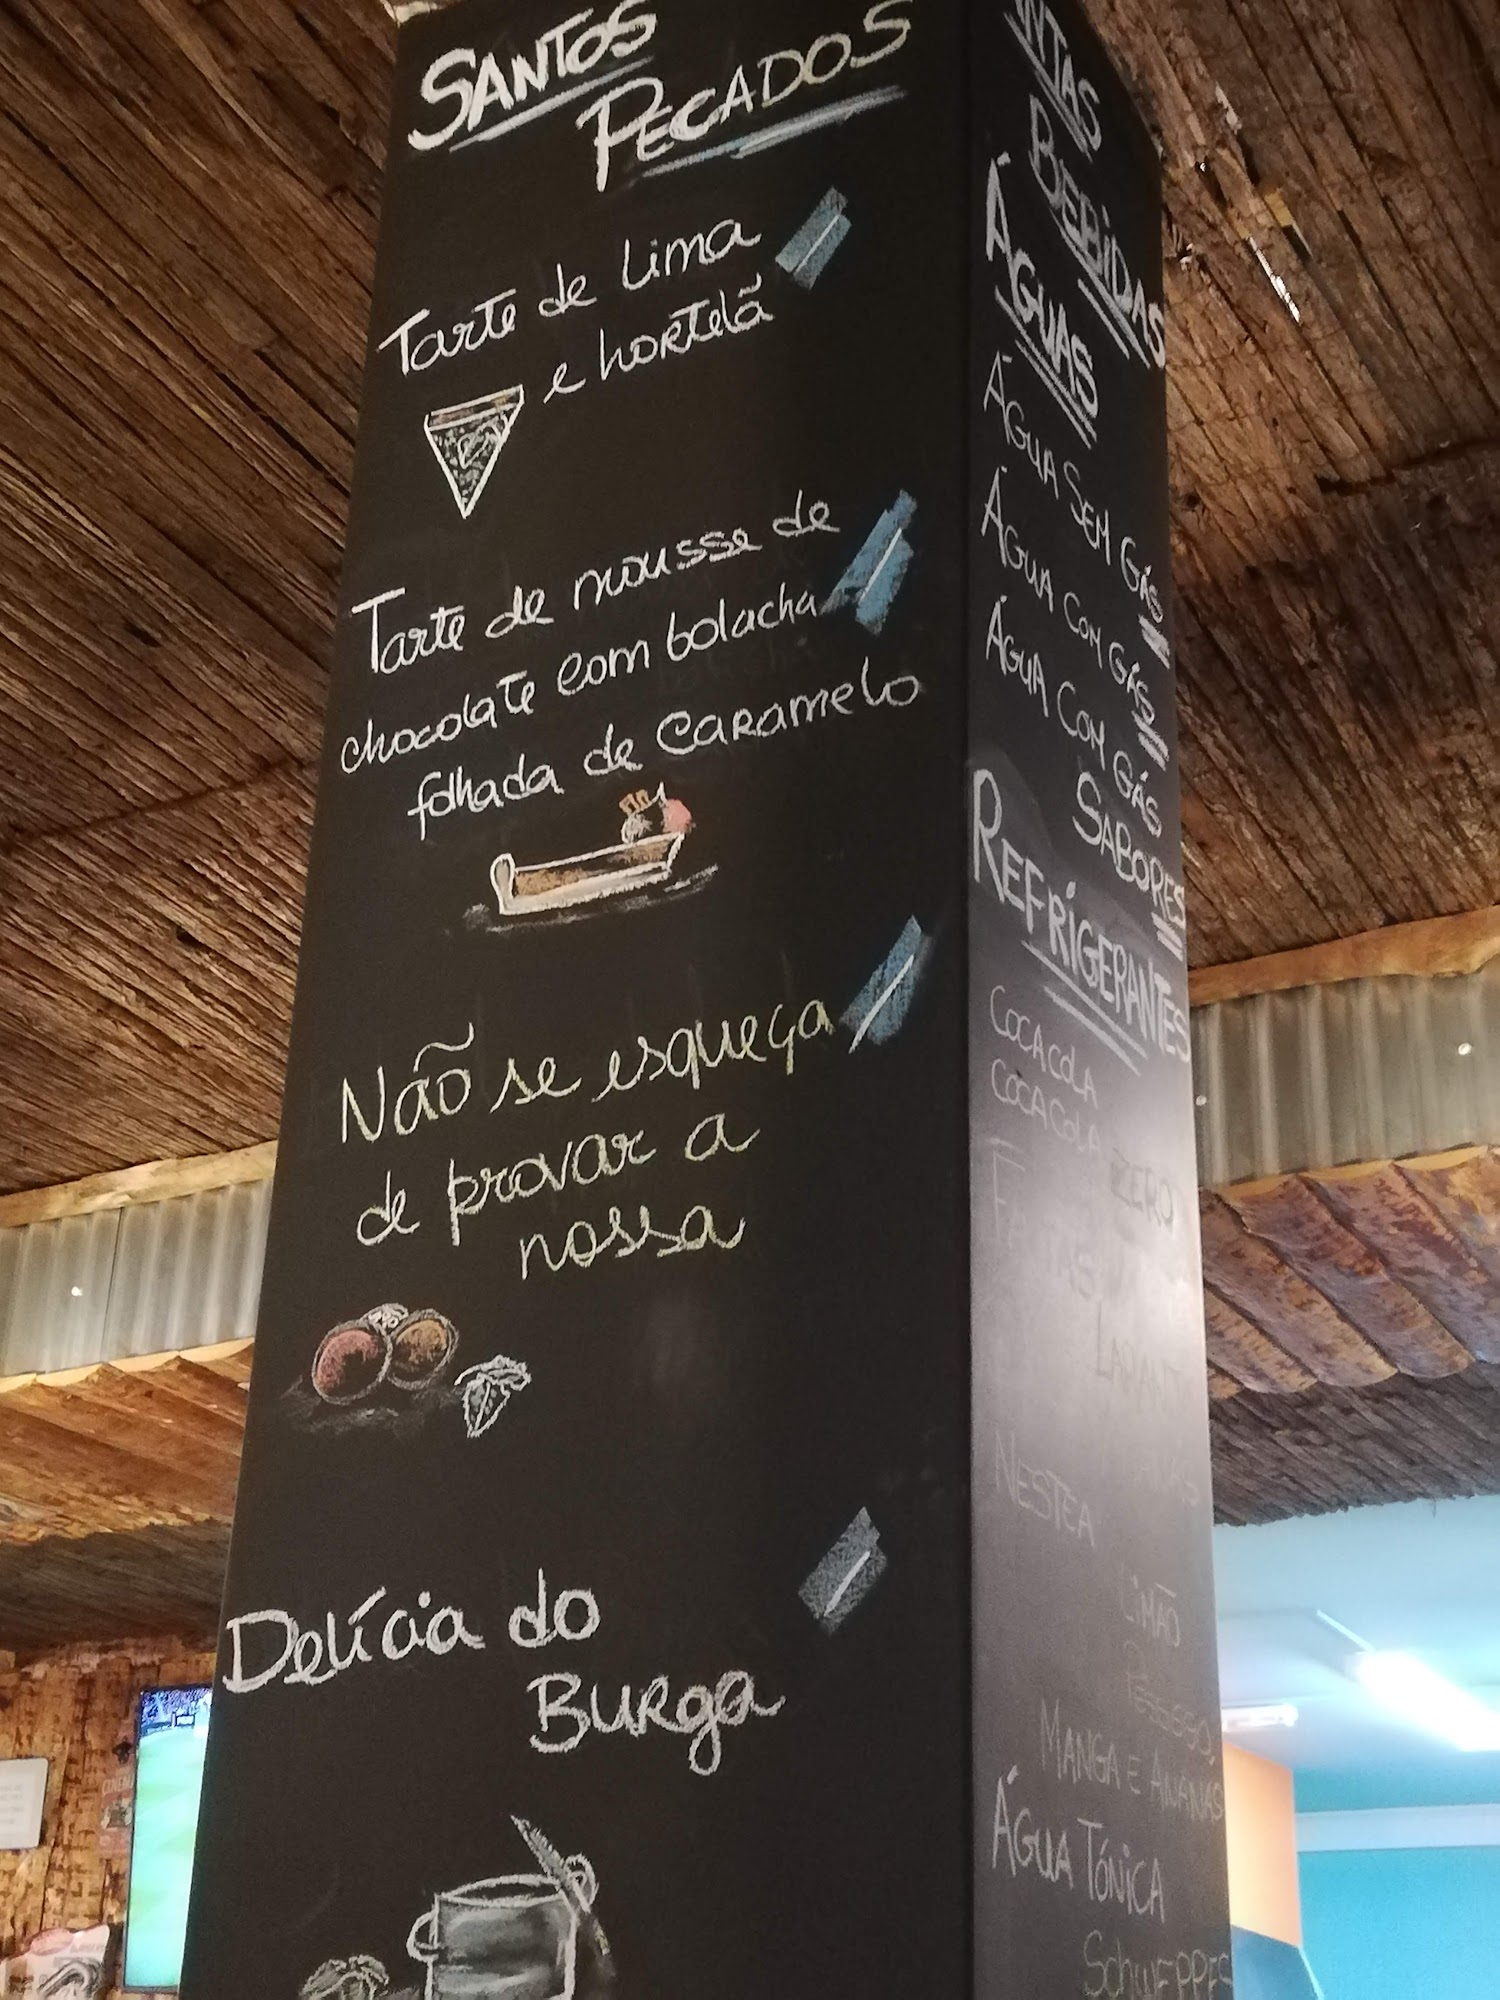 SANTOS
PECADOS
Tarte de Lima
e hortelã
Tarte de mousse de
chocolate com bolacha
folhada de caramelo
Não se esqueça
de provar a
nossa
Delícia do
Burga
BEBIDAS
ÁGUAS
ÁGUA SEM GÁS
ÁGUA COM GÁS
ÁGUA COM GÁS
SABORES
REFRIGERANTES
COCA COLA
COCA COLA
ZERO
NESTEA
LIMÃO
MANGA E ANANÁS
ÁGUA TÓNICA
SCHWEPPES